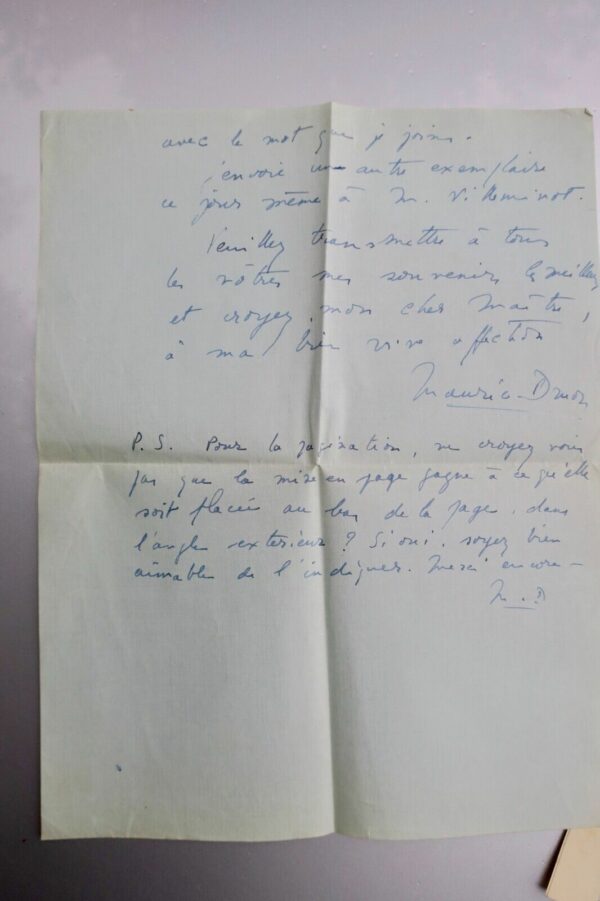 avec le mot que je joins.
j'envoie un autre exemplaire
ce jour même à M. Villeminot.
Veuillez transmettre à tous
les vôtres mes souvenirs les meilleurs
et croyez, mon cher Maître,
à ma bien vive affection
Maurice Druon
P.S. Pour la pagination, ne croyez vous
pas que la mise en page gagne à ce qu'elle
soit placée au bas de la page, dans
l'angle extérieur ? Si oui, soyez bien
aimable de l'indiquer. Merci encore -
M. D